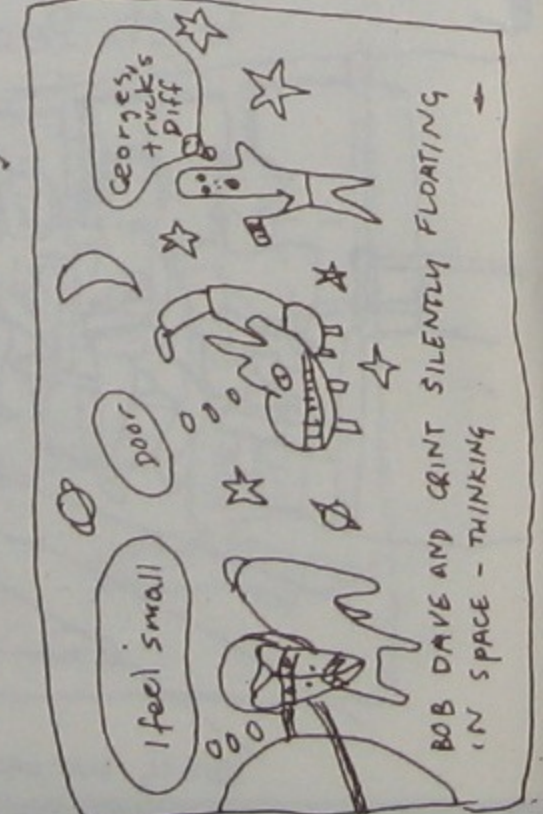 I feel small
Door
Georges,
trucks
Diff
BOB DAVE AND CRINT SILENTLY FLOATING
IN SPACE - THINKING